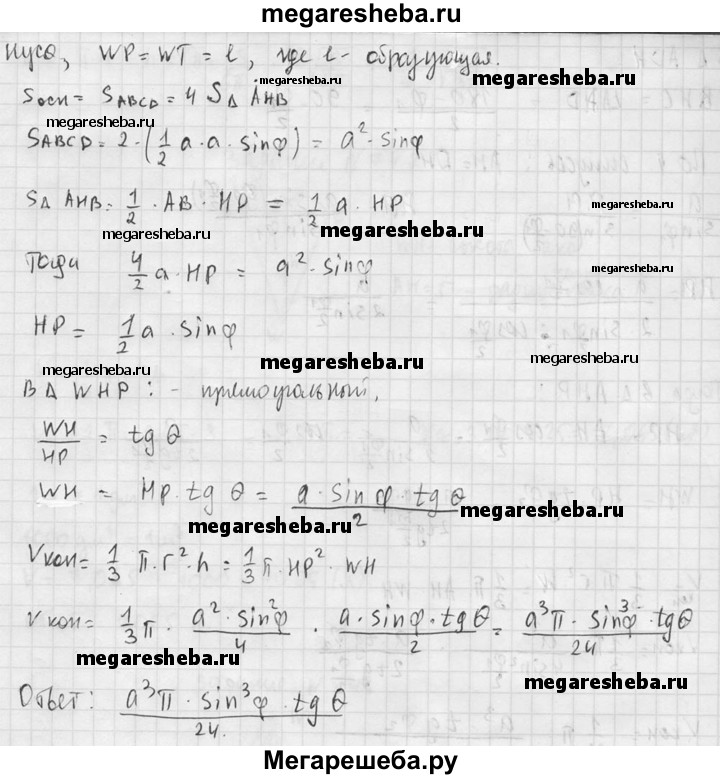 megaresheba.ru
нуса, WP = WT = l, где l - образующая.
megaresheba.ru megaresheba.ru
Sосн = SABCD = 4 SΔ AHB
megaresheba.ru megaresheba.ru
SABCD = 2·(1/2 a·a·sinφ) = a²·sinφ
SΔ AHB = 1/2 · AB · HP = 1/2 a · HP
megaresheba.ru
megaresheba.ru megaresheba.ru
Тогда 4/2 a·HP = a²·sinφ
megaresheba.ru
HP = 1/2 a · sinφ
megaresheba.ru megaresheba.ru megaresheba.ru
В Δ WHP : - прямоугольный,
WH/HP = tg θ
WH = HP·tg θ = a·sinφ·tg θ/2
megaresheba.ru megaresheba.ru
Vкон = 1/3 π·r²·h = 1/3 π·HP²·WH
Vкон = 1/3 π · a²·sin²φ/4 · a·sinφ·tgθ/2 = a³π·sin³φ·tgθ/24
megaresheba.ru megaresheba.ru
megaresheba.ru
Ответ: a³π·sin³φ·tgθ/24.
Мегарешеба.ру